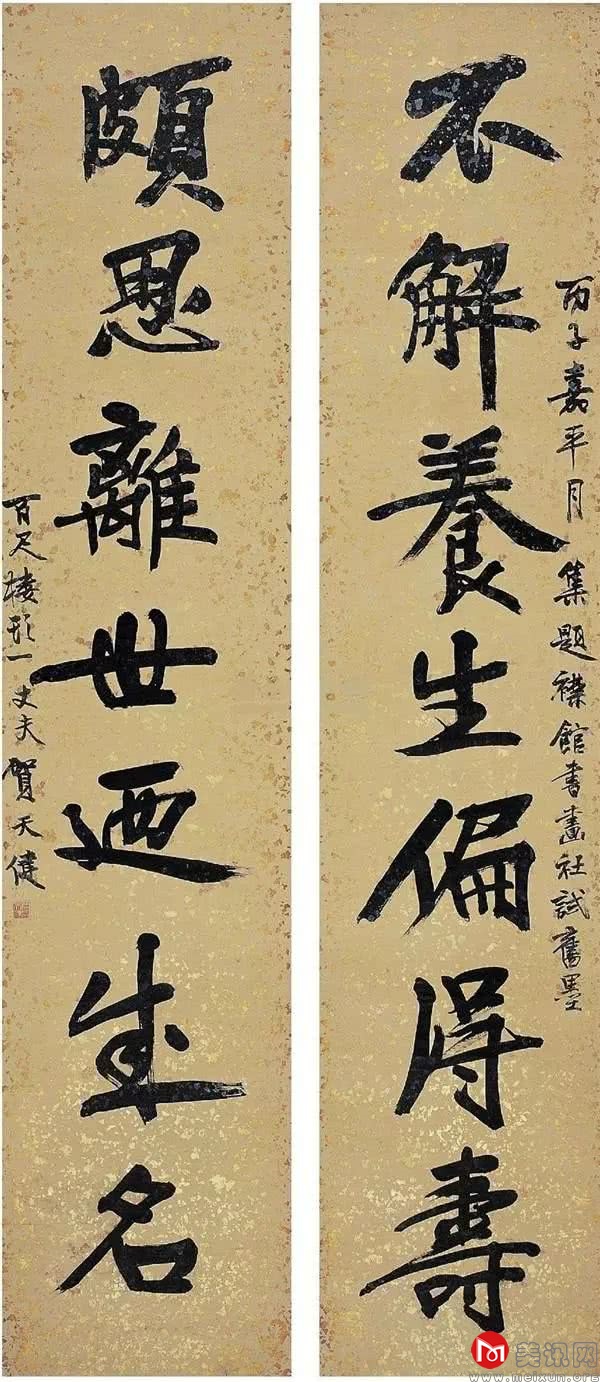 不解養生偏得壽
丙子嘉平月集題襟館書畫社試舊墨
頗思離世迺成名
百尺樓頭一丈夫賀天健
美讯网
www.meixun.org